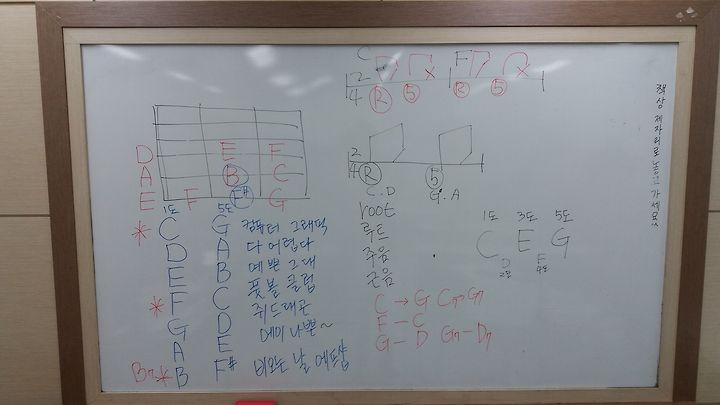 C F
2
4 R 5 R 5
책상 제자리로 놓고 가세요
D E F
A B C
E F F# G
2
4 R 5
C.D G.A
root
루트
주음
근음
1도 3도 5도
C E G
D F
2도 4도
1도 5도
* C G 컴퓨터 그래픽
D A 다 어렵다
E B 예쁜 그대
* F C 풋볼 클럽
G D 쥐드래곤
A E 에이 나쁜~
B7 * B F# 비오는 날 에프샵
C → G C7 G7
F — C
G — D G7 — D7